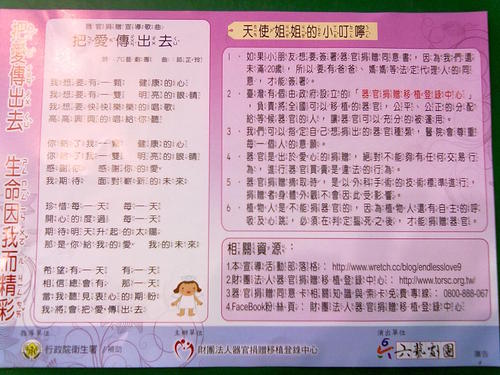 把愛傳出去 生命因我而精彩
器官捐贈宣導歌曲
把愛傳出去
我想要有一顆 健康的心
我想要有一雙 明亮的眼睛
我想要快快樂樂的唱歌
高高興興的唱給你聽
你給了我一顆 健康的心
你給了我一雙 明亮的眼睛
感謝你 感謝你的愛
我期待 面對嶄新的未來
珍惜每一天 每一天
開心的度過 每一天
期待明天升起的太陽
那是你給我的愛 我的未來
希望有一天 有一天
相信總會有 那一天
當我聽見衷心的期盼
我將會把愛傳出去
天使姐姐的小叮嚀
1、如果小朋友想要簽署器官捐贈同意書，因為我們還
未滿20歲，所以要有爸爸、媽媽等法定代理人的同
意，才能簽署。
2、臺灣有個由政府設立的「器官捐贈移植登錄中心」，
負責將全國可以移植的器官，公平、公正的分配
給等候器官的人，讓器官可以充分的被運用。
3、我們可以指定自己想捐出的器官種類，醫院會尊重
每一個人的意願。
4、器官捐贈是出於愛心的捐贈，絕對不能夠有任何交易行
為，進行器官買賣是違法的行為。
5、器官捐贈摘取時，是以外科手術的技術標準進行，
捐贈者的身體外觀不會因此受影響。
6、植物人是不能捐器官的，因為植物人還有自主的呼
吸及心跳，必須在判定腦死之後，才能捐贈器官。
相關資源：
1.本宣導活動部落格：http://www.wretch.cc/blog/endlesslove9
2.財團法人器官捐贈移植登錄中心：http://www.torsc.org.tw/
3.器官捐贈同意卡相關知識與索卡免費專線：0800-888-067
4.FaceBook粉絲頁：財團法人器官捐贈移植登錄中心
指導單位
行政院衛生署 /補助
主辦單位
財團法人器官捐贈移植登錄中心
演出單位
六藝劇團
廣告